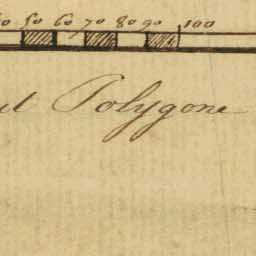 50 60 70 80 90 100
Polygone